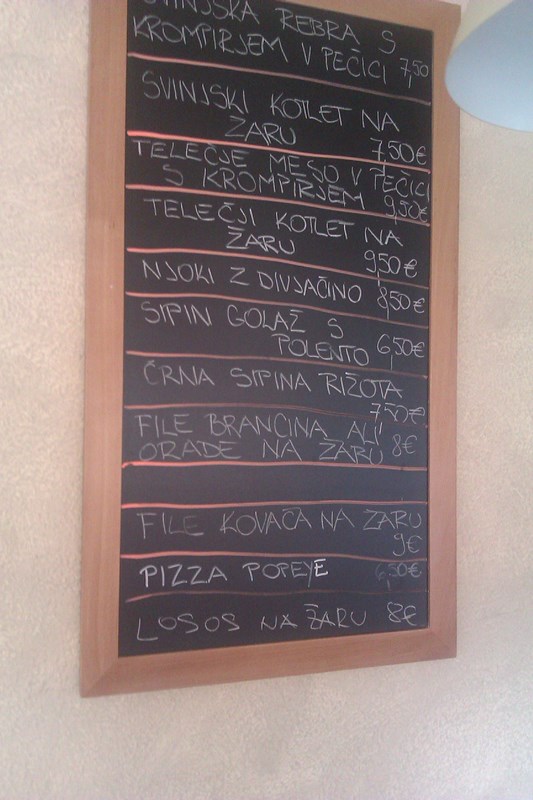 SVINJSKA REBRA S
KROMPIRJEM V PEČICI 7,50
SVINJSKI KOTLET NA
ŽARU 7,50€
TELEČJE MESO V PEČICI
S KROMPIRJEM 9,50€
TELEČJI KOTLET NA
ŽARU 9,50€
NJOKI Z DIVJAČINO 8,50€
SIPIN GOLAŽ S
POLENTO 6,50€
ČRNA SIPINA RIŽOTA
7,50€
FILE BRANCINA ALI
ORADE NA ŽARU 8€
FILE KOVAČA NA ŽARU
9€
PIZZA POPEYE 6,50€
LOSOS NA ŽARU 8€